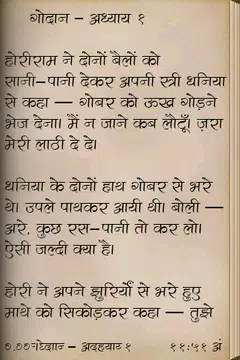 गोदान – अध्याय १
होरीराम ने दोनों बैलों को
सानी-पानी देकर अपनी स्त्री धनिया
से कहा — गोबर को ऊख गोड़ने
भेज देना। मैं न जाने कब लौटूँ। ज़रा
मेरी लाठी दे दे।
धनिया के दोनों हाथ गोबर से भरे
थे। उपले पाथकर आयी थी। बोली —
अरे, कुछ रस-पानी तो कर लो।
ऐसी जल्दी क्या है।
होरी ने अपने झुर्रियों से भरे हुए
माथे को सिकोड़कर कहा — तुझे
११:५१ अं